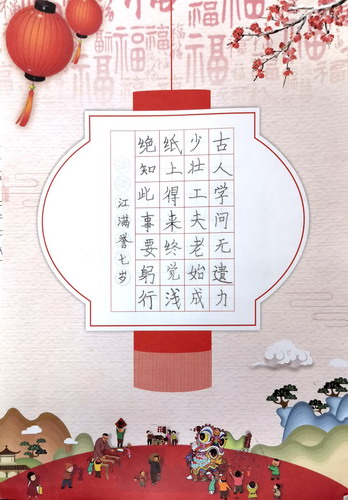 古人学问无遗力
少壮工夫老始成
纸上得来终觉浅
绝知此事要躬行
江满誉七岁